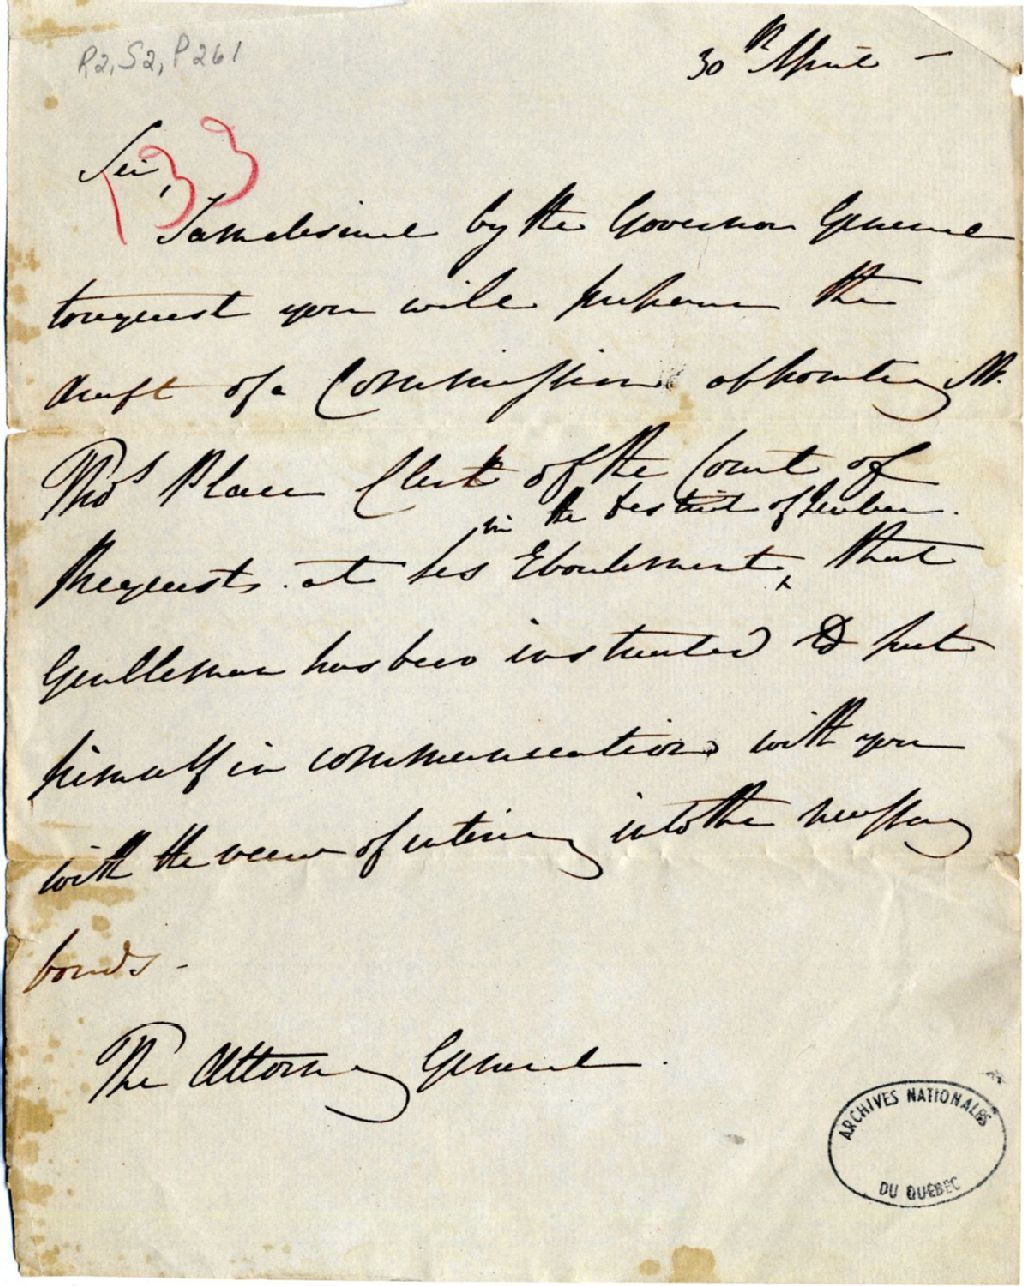 R2, S2, P261
30th April –
133
Sir,
I am desired by the Governor General
to request you will prepare the
draft of a Commission appointing Mr.
Thos Place Clerk of the Court of
in the District of Quebec.
Requests at les Eboulements, that
Gentleman has been instructed to put
himself in communication with you
with the view of entering into the necessary
bonds –
The Attorney General.
ARCHIVES NATIONALES
DU QUÉBEC